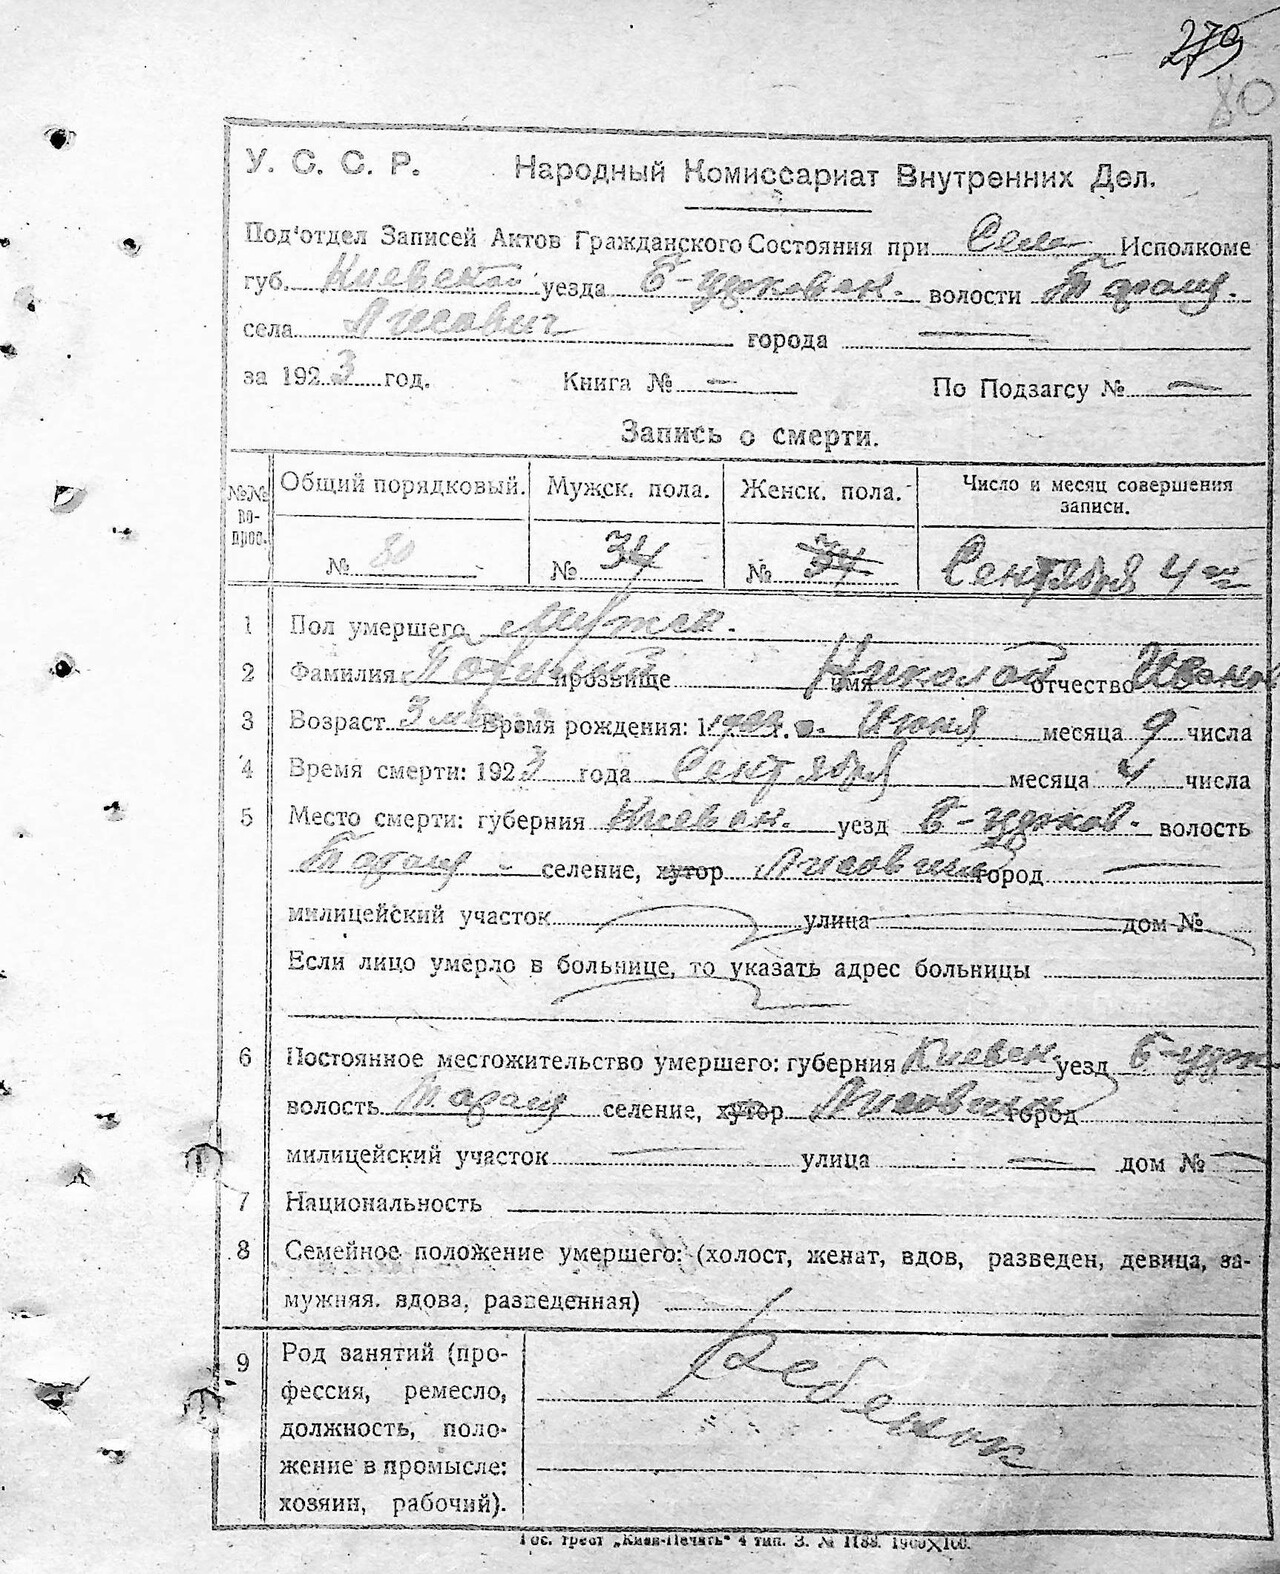 279
80
У. С. С. Р. Народный Комиссариат Внутренних Дел.
Под'отдел Записей Актов Гражданского Состояния при Села Исполкоме
губ. Киевской уезда Б-церковск. волости Таращ.
села Лисович города —
за 1923 год. Книга № — По Подзагсу № —
Запись о смерти.
№№ во-прос. Общий порядковый. Мужск. пола. Женск. пола. Число и месяц совершения
записи.
№ 80 № 34 № 34 Сентября 4го
1 Пол умершего Мужск.
2 Фамилия прозвище имя Николай отчество Иванов
3 Возраст 3 мес Время рождения: 1923 г. Июня месяца 9 числа
4 Время смерти: 1923 года Сентября месяца 4 числа
5 Место смерти: губерния Киевск. уезд Б-церков. волость
Таращ - селение, хутор Лисович город —
милицейский участок улица дом №
Если лицо умерло в больнице, то указать адрес больницы
6 Постоянное местожительство умершего: губерния Киевск уезд Б-церк
волость Таращ селение, хутор Лисович город
милицейский участок — улица — дом № —
7 Национальность
8 Семейное положение умершего: (холост, женат, вдов, разведен, девица, за-
мужняя. вдова, разведенная)
9 Род занятий (про-
фессия, ремесло,
должность, поло-
жение в промысле:
хозяин, рабочий).
Ребенок
Гос. трест „Киев-Печать" 4 тип. З. № 1188. 1900×100.